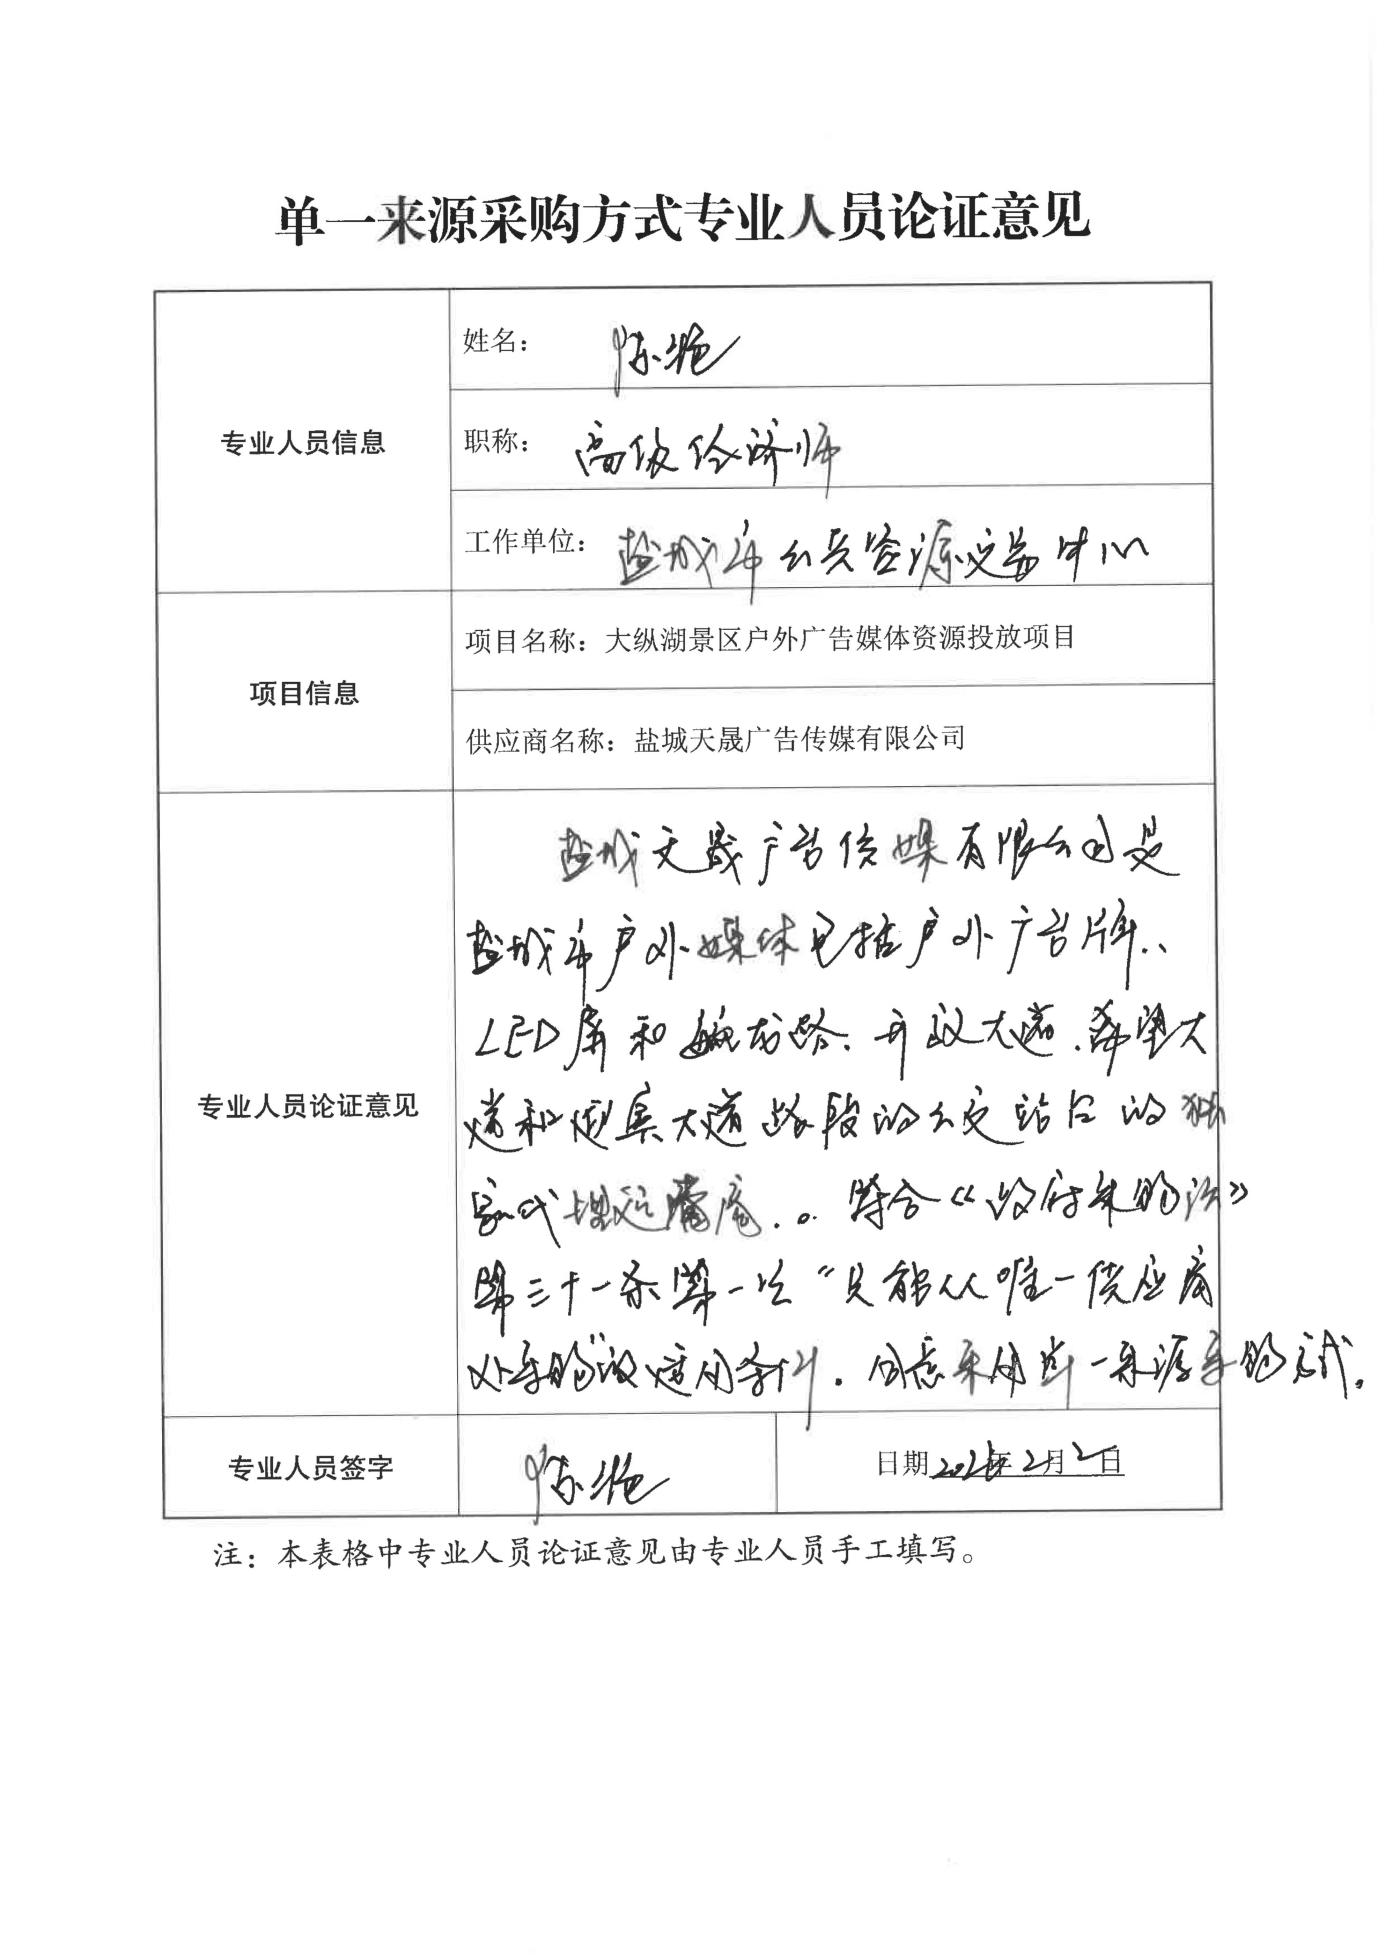 单一来源采购方式专业人员论证意见
专业人员信息
姓名： 陈艳
职称： 高级经济师
工作单位： 盐城市公共资源交易中心
项目信息
项目名称：大纵湖景区户外广告媒体资源投放项目
供应商名称：盐城天晟广告传媒有限公司
专业人员论证意见
盐城天晟广告传媒有限公司是
盐城市户外媒体包括户外广告牌、
LED屏和 路、开放大道、希望大
道和 大道路段的公交站台的独
家代理运营商。符合《政府采购法》
第三十一条第一款“只能从唯一供应商
处采购”的适用条件，同意采用单一来源采购方式。
专业人员签字
陈艳
日期 年2月2日
注：本表格中专业人员论证意见由专业人员手工填写。